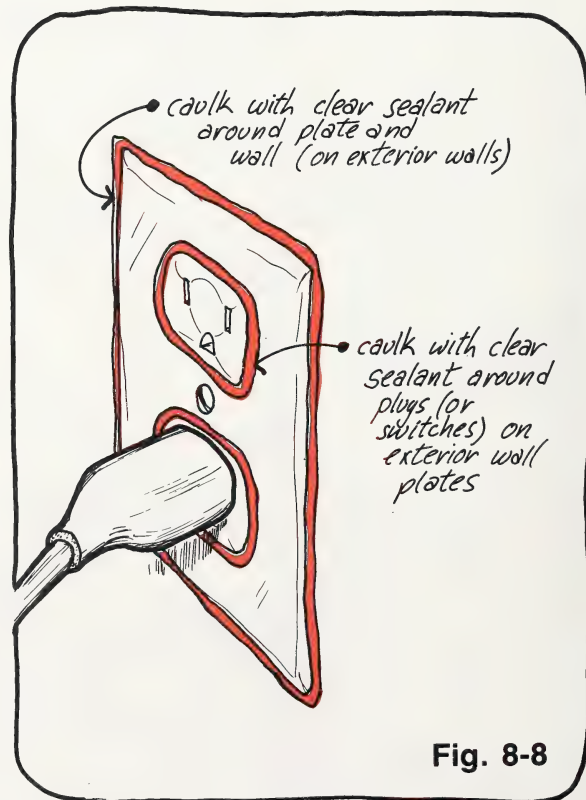 caulk with clear sealant
around plate and
wall (on exterior walls)
caulk with clear
sealant around
plugs (or
switches) on
exterior wall
plates
Fig. 8-8